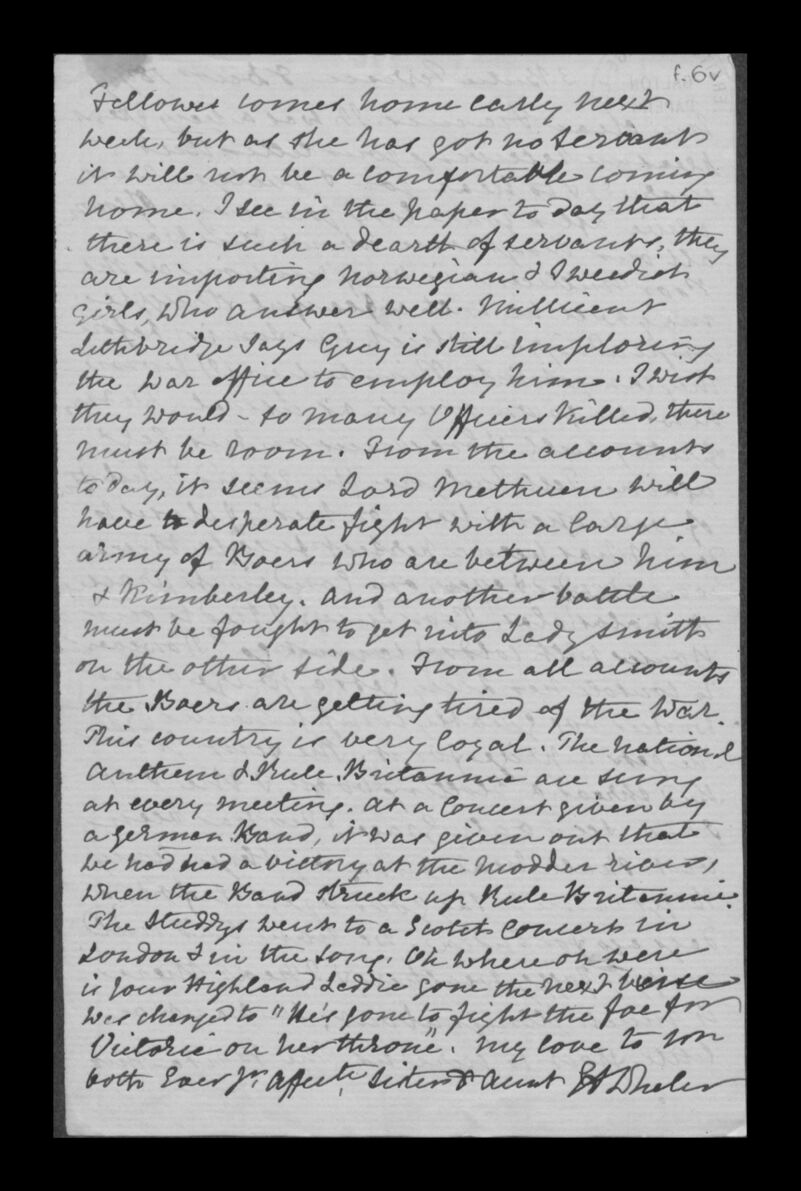 f. 6v
Fellowes comes home early next
week, but as she has got no servant
it will not be a comfortable coming
home. I see in the paper to day that
there is such a dearth of servants, they
are importing Norwegian & Swedish
girls, who answer well. Millicent
Lethbridge says Guy is still imploring
the War office to employ him. I wish
they would - so many Officers killed, there
must be room. From the accounts
to day, it seems Lord Methuen will
have a desperate fight with a large
army of Boers who are between him
& Kimberley. And another battle
must be fought to get into Ladysmith
on the other side. From all accounts
the Boers are getting tired of the War.
This country is very loyal. The national
Anthem & Rule Britannia are sung
at every meeting. At a Concert given by
a German Band, it was given out that
we had had a victory at the Modder river,
when the Band struck up Rule Britannia.
The Studdys went to a Scotch Concert in
London & in the song, Oh where oh where
is your Highland Laddie gone the next verse
was changed to "He's gone to fight the foe for
Victoria on her throne". My love to you
both Ever yr. affecte. Sister & Aunt